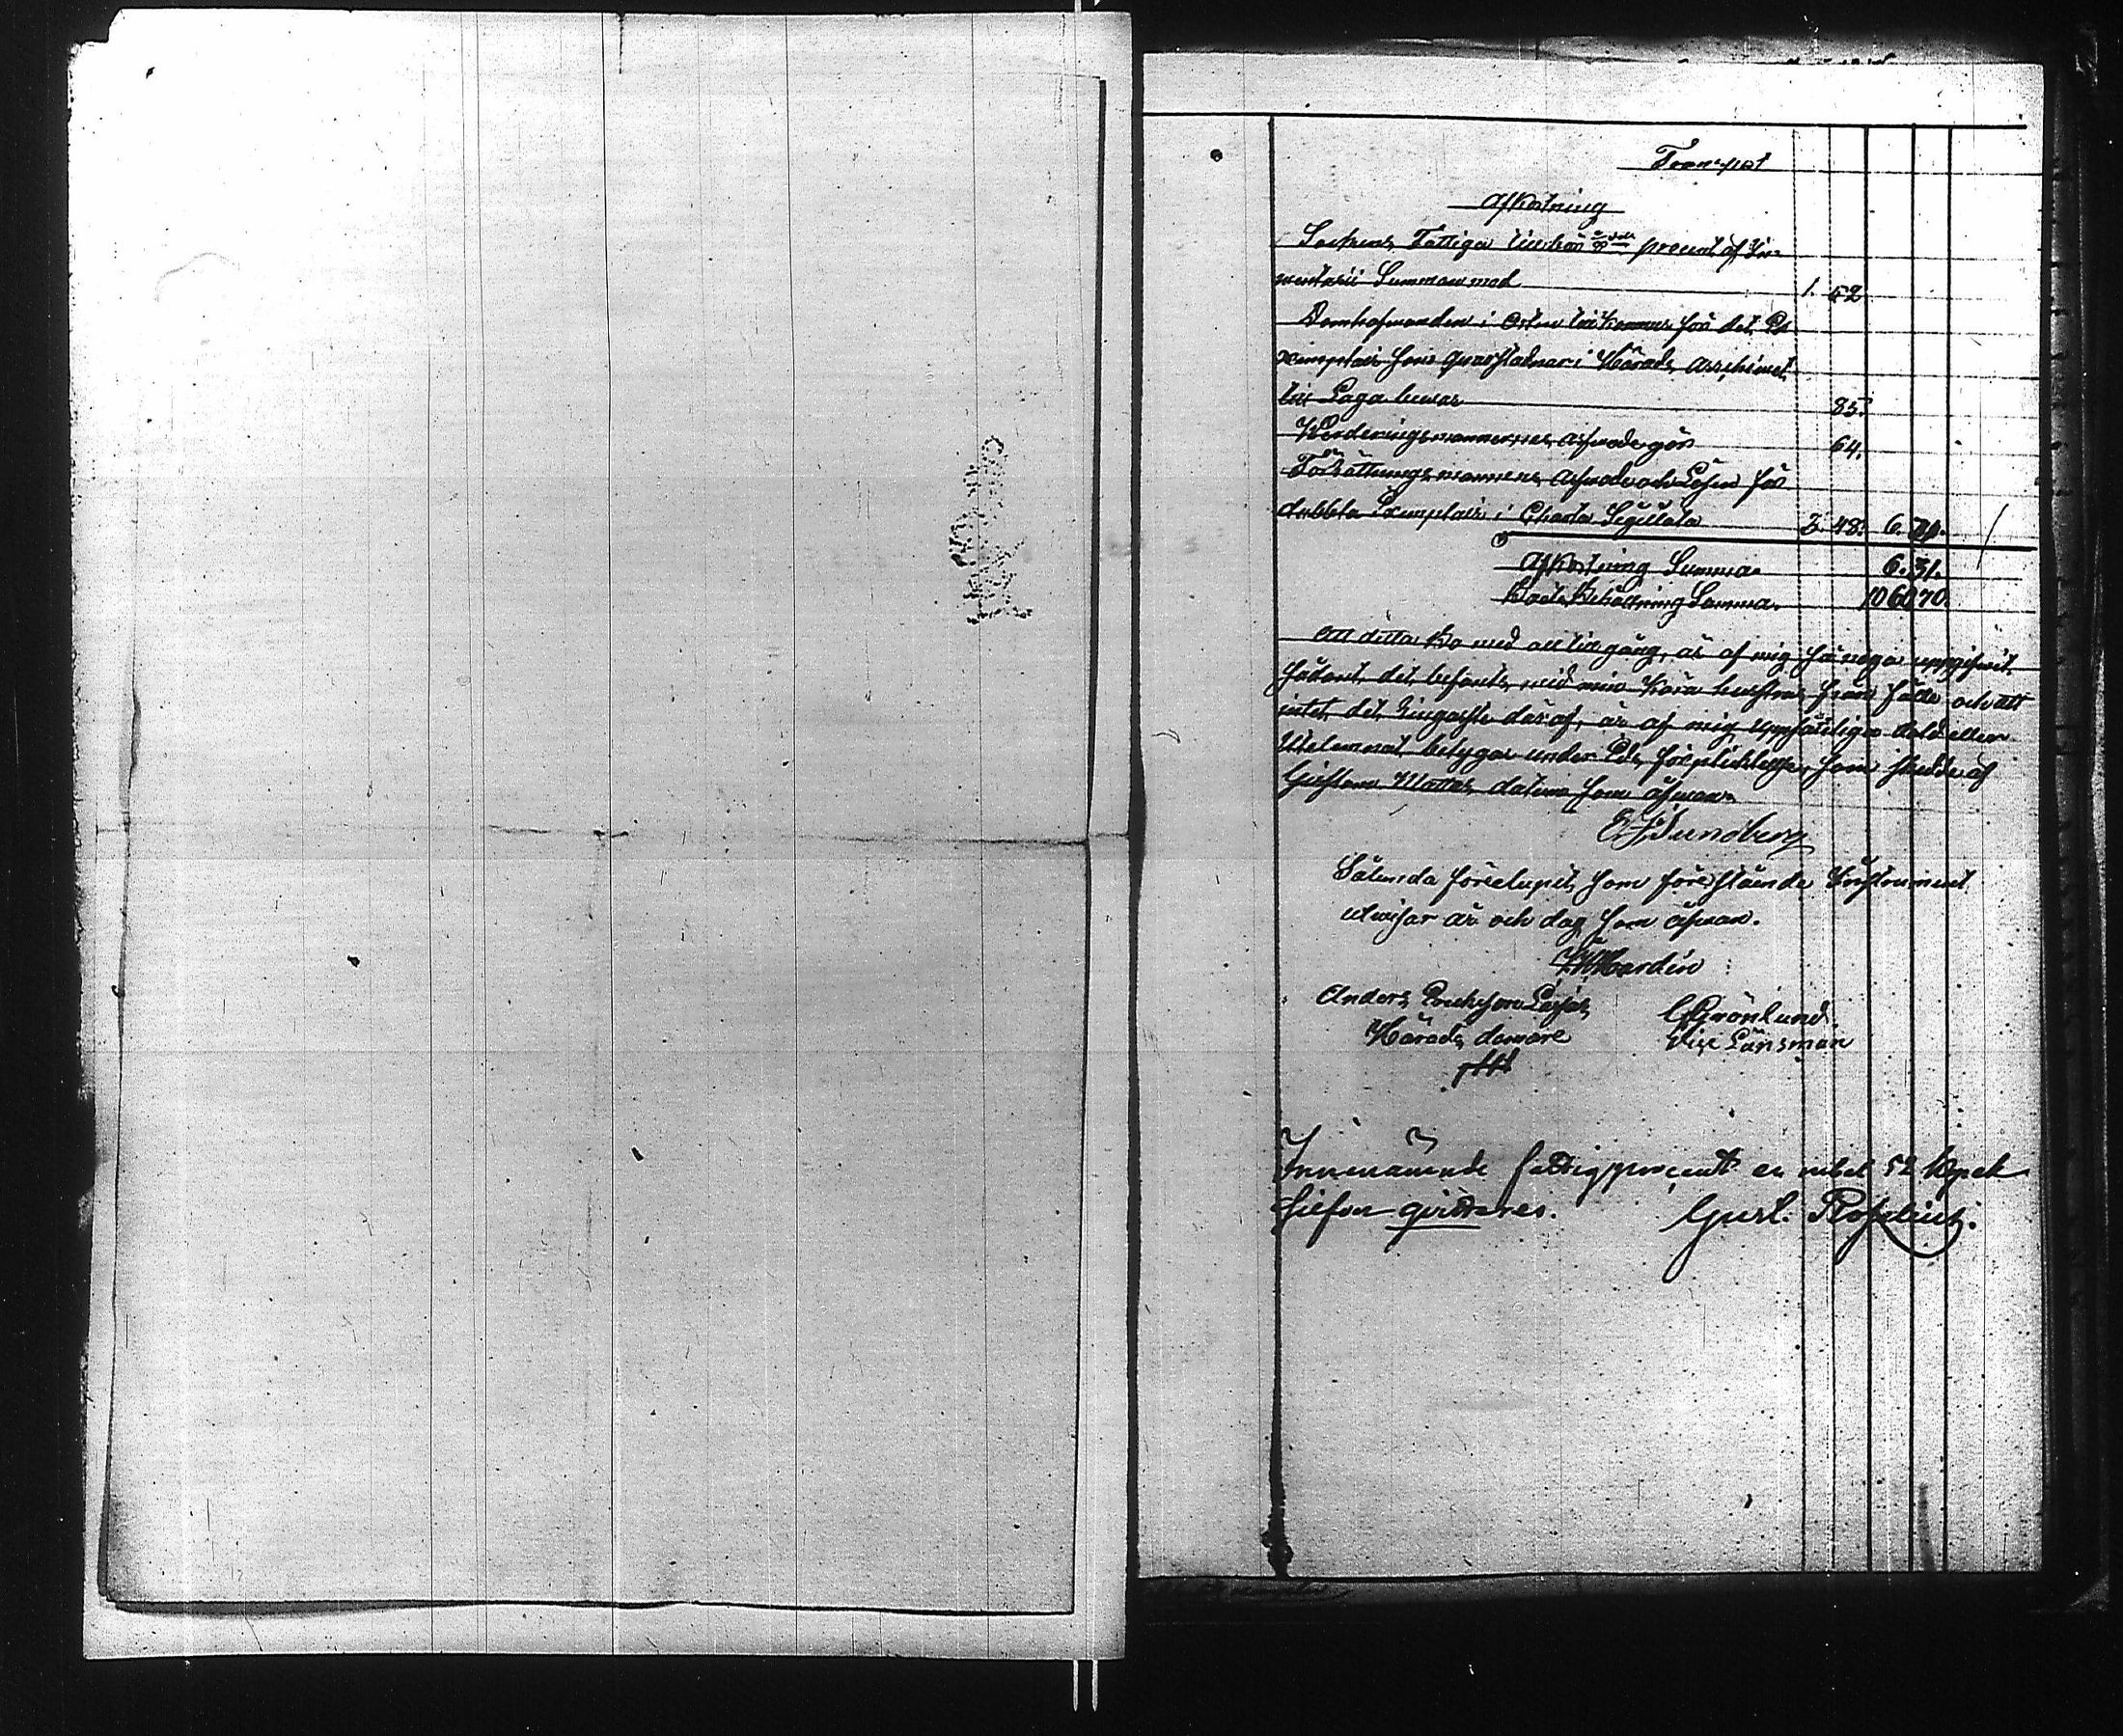 Transport
Afkortning
Sockens Fattiga procent af In-
ventarii Summan med 1. 52
Domhafvanden i Orten tillkommer för det Ex
emplair som qvarstadnar i Härads Archivet
till Laga bevar 85.
Värderingsmännernes Arfvode gör 64.
Förrättningsmannens Arfvode och Lösen för
dubbla Exemplair i Charta Sigillata 3. 48. 6.
Afkortning Summa 6. 31.
Behållning Summa. 1060 70.
Att detta Bo med all tillgång, är af mig så noga uppgifwit
sådant det befants wid min Kära hustrus från fälle och att
intet det Ringaste däraf, är af mig uppsåtligen döld eller
Utelemnat betygar under Eds förplicktelse, som skedde af
datum som ofwan.
Sundberg
Sålunda förelupit som förestående Instrument
utwisar år och dag som ofwan.
Anders
Härads domare
Grönlund
Vice Länsman
Innenämnde fattigprocent en rubel 52 kopek
Silfver qvitteres. Gust.